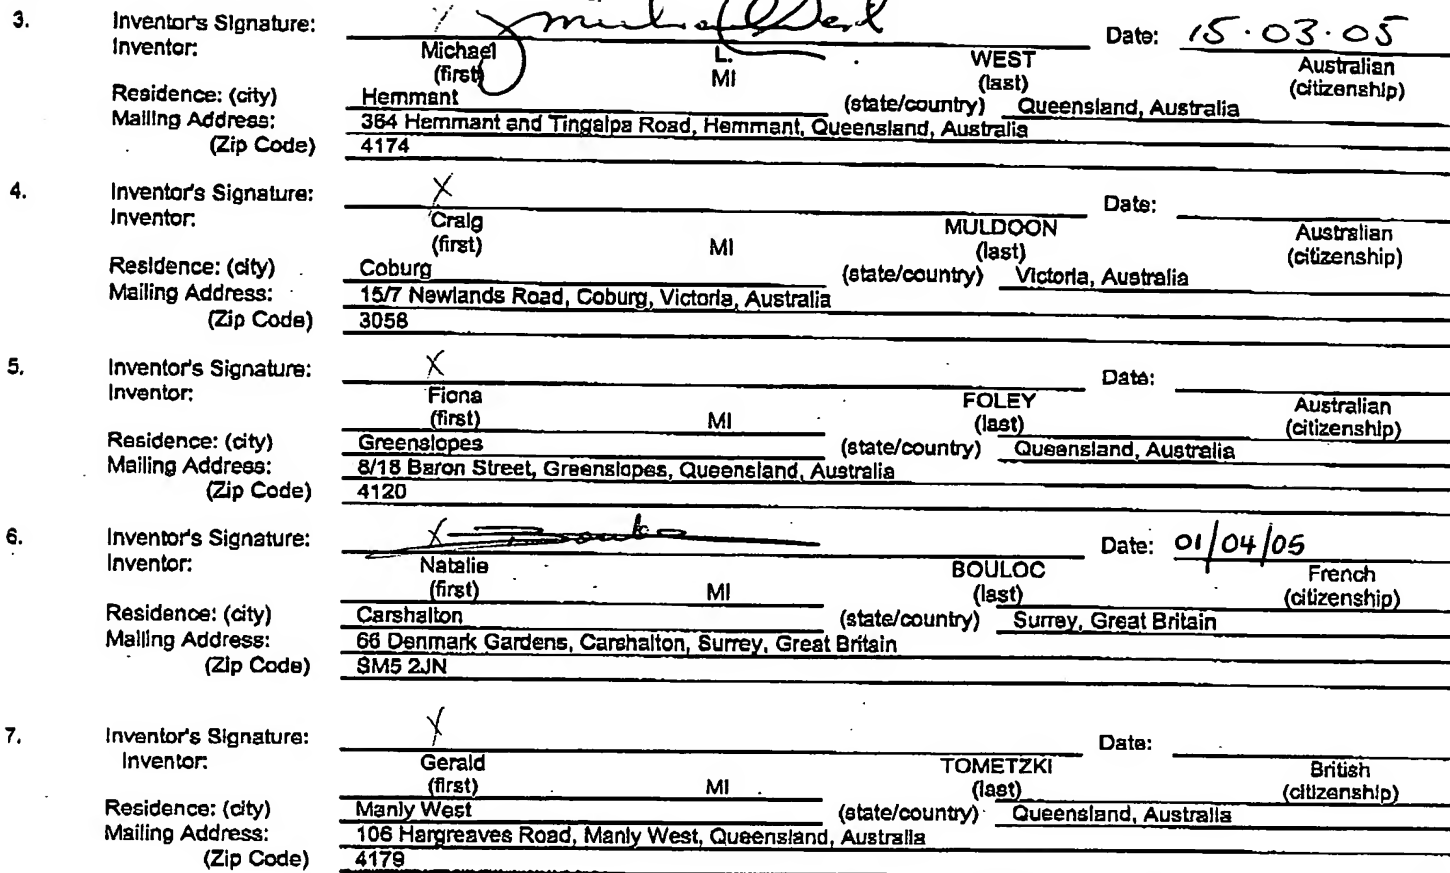 3. Inventor's Signature: Michael West Date: 15.03.05
Inventor: Michael L. WEST Australian
(first) MI (last) (citizenship)
Residence: (city) Hemmant (state/country) Queensland, Australia
Mailing Address: 364 Hemmant and Tingalpa Road, Hemmant, Queensland, Australia
(Zip Code) 4174
4. Inventor's Signature: X Date:
Inventor: Craig MULDOON Australian
(first) MI (last) (citizenship)
Residence: (city) Coburg (state/country) Victoria, Australia
Mailing Address: 15/7 Newlands Road, Coburg, Victoria, Australia
(Zip Code) 3058
5. Inventor's Signature: X Date:
Inventor: Fiona FOLEY Australian
(first) MI (last) (citizenship)
Residence: (city) Greenslopes (state/country) Queensland, Australia
Mailing Address: 8/18 Baron Street, Greenslopes, Queensland, Australia
(Zip Code) 4120
6. Inventor's Signature: X Date: 01/04/05
Inventor: Natalie BOULOC French
(first) MI (last) (citizenship)
Residence: (city) Carshalton (state/country) Surrey, Great Britain
Mailing Address: 66 Denmark Gardens, Carshalton, Surrey, Great Britain
(Zip Code) SM5 2JN
7. Inventor's Signature: X Date:
Inventor: Gerald TOMETZKI British
(first) MI (last) (citizenship)
Residence: (city) Manly West (state/country) Queensland, Australia
Mailing Address: 106 Hargreaves Road, Manly West, Queensland, Australia
(Zip Code) 4179